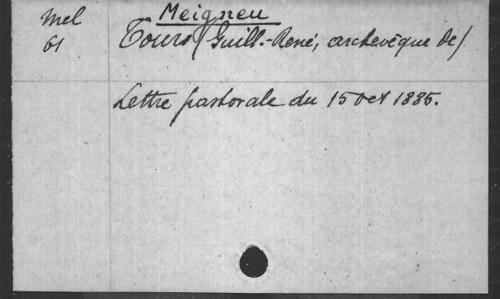 Meigneu
Mel Tours (Guill.-René, archevêque de)
61
Lettre pastorale du 15 Oct 1885.